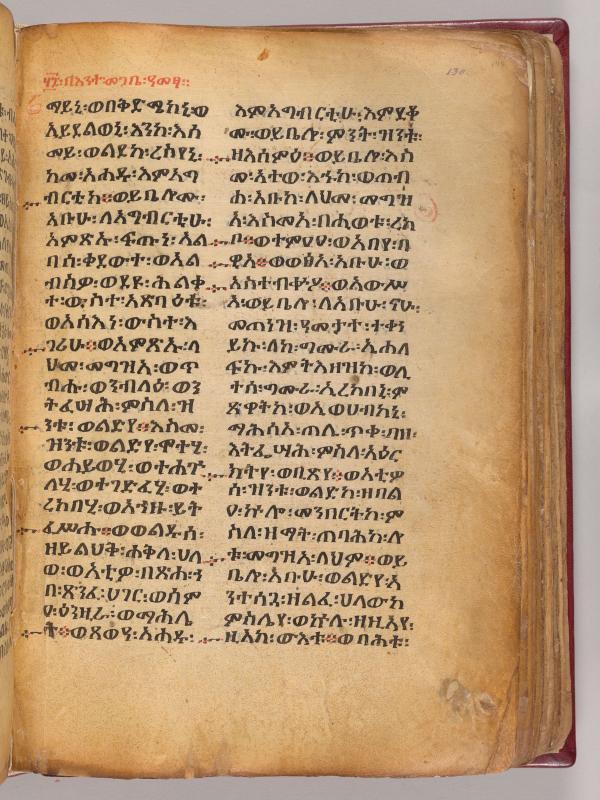 ፶፯፡በእንተ፡መጋቤ፡ዓመፃ።
130
ማይኒ፡ወበቅድሜከኒ፡ወ
አይደልወኒ፡እንከ፡እስ
መይ፡ወልደከ፡ረስየኒ፡
ከመ፡አሐዱ፡እምአግ
ብርቲከ፨ወይቤሎሙ፡
አቡሁ፡ለአግብርቲሁ፡
አምጽኡ፡ፍጡነ፡አል
ባሰ፡ቀደውተ፡ወአል
ብስዎ፡ወደዩ፡ሕልቀ
ተ፡ውስተ፡አጽባዕቱ፡
ወአሳእነ፡ውስተ፡እ
ገሪሁ፨ወአምጽኡ፡ላ
ህመ፡መግዝአ፡ወጥ
ብሑ፡ወንብላዕ፡ወን
ትፈሣሕ፡ምስለ፡ዝ
ንቱ፡ወልድየ፨እስመ፡
ዝንቱ፡ወልድየ፡ሞተሂ፡
ወሐይወሂ፡ወተሐጕ
ለሂ፡ወተገድፈሂ፡ወተ
ረክበሂ፡ወአኀዙ፡ይት
ፈሥሑ፨ወወልዱሰ፡
ዘይልህቅ፡ሐቅለ፡ሀለ
ወ፡ወአቲዎ፡በጽሐ፡ኀ
በ፡ጽንፈ፡ሀገር፡ወሰም
ዐ፡ዕንዚራ፡ወማሕሌ
ተ፨ወጸውዐ፡አሐዱ፡
እምአግብርቲሁ፡እምደቆ
ሙ፡ወይቤሎ፡ምንት፡ዝንቱ፡
ዘእሰምዕ፨ወይቤሎ፡እስ
መ፡አተወ፡እኁከ፡ወጠብ
ሐ፡አቡከ፡ላህመ፡መግዝ
አ፡እስመአ፡በሕይወቱ፡ረከ
ቦ፨ወተምዐዐ፡ወአበየ፡በ
ዊአ፨ወወፅአ፡አቡሁ፡ወ
አስተብቍዖ፨ወአውሥ
አ፡ወይቤሎ፡ለአቡሁ፡ናሁ፡
መጠነዝ፡ዓመታተ፡ተቀን
ይኩ፡ለከ፡ግሙራ፡ኢሐለ
ፍኩ፡እምትእዛዝከ፡ወሊ
ተሰ፡ግሙራ፡ኢረከበኒ፡ም
ጽዋትከ፡ወኢወሀብከኒ፡
ማሕስአ፡ጠሊ፡ጥቀ፡ጊዜ፡
እትፌሣሕ፡ምስለ፡አዕር
ክትየ፡ወቢጽየ፨ወአቲዎ
ሰ፡ዝንቱ፡ወልድከ፡ዘበል
ዐ፡ኵሎ፡መንበርትከ፡ም
ስለ፡ዘማት፡ጠባሕከ፡ሎ
ቱ፡መግዝአ፡ላህም፨ወይ
ቤሎ፡አቡሁ፡ወልድየ፡አ
ንተሰ፡ዘልፈ፡ሀለውከ
ምስሌየ፡ወኵሉ፡ዘዚአየ፡
ዚአከ፡ውእቱ፨ወባሕቱ፡